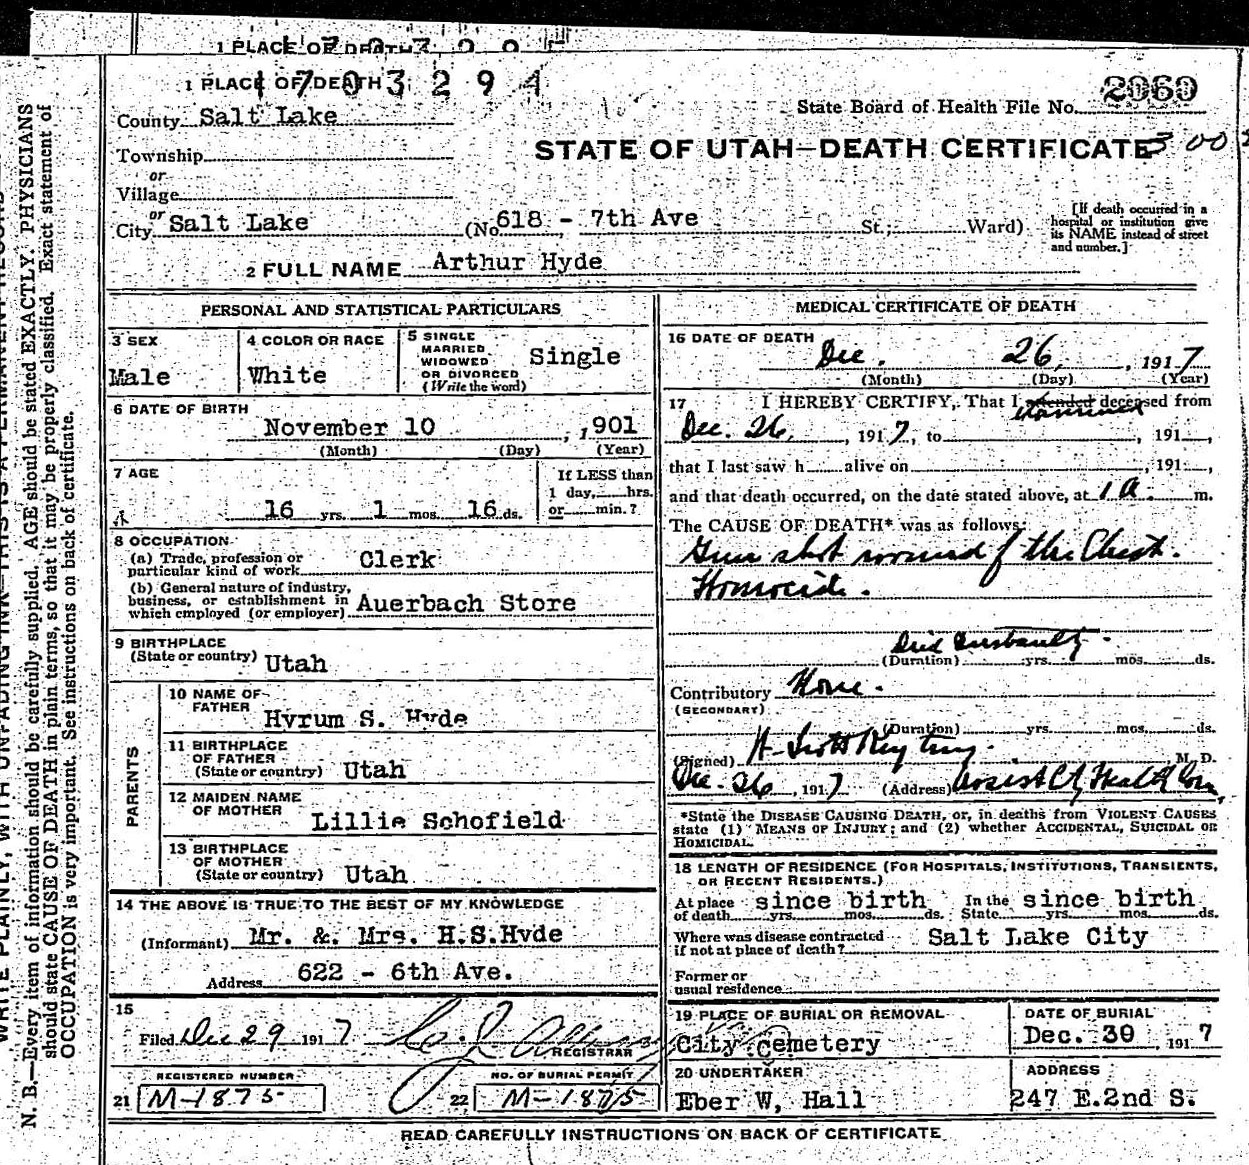 1 PLACE OF DEATH
1703294
1 PLACE OF DEATH
2060
State Board of Health File No.
County Salt Lake
STATE OF UTAH—DEATH CERTIFICATE
300
Township
or
Village
or
City Salt Lake (No. 618 - 7th Ave St.; Ward)
[If death occurred in a hospital or institution give its NAME instead of street and number.]
2 FULL NAME Arthur Hyde
PERSONAL AND STATISTICAL PARTICULARS
3 SEX
Male
4 COLOR OR RACE
White
5 SINGLE
MARRIED
WIDOWED
OR DIVORCED
(Write the word)
Single
6 DATE OF BIRTH
November 10, 1901
(Month) (Day) (Year)
7 AGE
16 yrs. 1 mos. 16 ds.
If LESS than
1 day, hrs.
or min.?
8 OCCUPATION
(a) Trade, profession or
particular kind of work Clerk
(b) General nature of industry,
business, or establishment in
which employed (or employer) Auerbach Store
9 BIRTHPLACE
(State or country) Utah
PARENTS
10 NAME OF
FATHER
Hyrum S. Hyde
11 BIRTHPLACE
OF FATHER
(State or country) Utah
12 MAIDEN NAME
OF MOTHER
Lillie Schofield
13 BIRTHPLACE
OF MOTHER
(State or country) Utah
14 THE ABOVE IS TRUE TO THE BEST OF MY KNOWLEDGE
(Informant) Mr. &. Mrs. H.S.Hyde
Address 622 - 6th Ave.
15
Filed Dec 29 1917
REGISTRAR
REGISTERED NUMBER
21 M-1875
NO. OF BURIAL PERMIT
22 M-1875
MEDICAL CERTIFICATE OF DEATH
16 DATE OF DEATH
Dec. 26, 1917
(Month) (Day) (Year)
17 I HEREBY CERTIFY, That I attended deceased from
Dec. 26, 1917, to , 191 ,
that I last saw h alive on , 191 ,
and that death occurred, on the date stated above, at 1 a. m.
The CAUSE OF DEATH* was as follows:
Gun shot wound of the Chest.
Homocide.
Died
(Duration) yrs. mos. ds.
Contributory None.
(SECONDARY)
(Duration) yrs. mos. ds.
(Signed) M. D.
Dec. 26, 1917 (Address) Assist Cty Health Com
*State the DISEASE CAUSING DEATH, or, in deaths from VIOLENT CAUSES
state (1) MEANS OF INJURY; and (2) whether ACCIDENTAL, SUICIDAL OR
HOMICIDAL.
18 LENGTH OF RESIDENCE (FOR HOSPITALS, INSTITUTIONS, TRANSIENTS,
OR RECENT RESIDENTS.)
At place of death since birth yrs. mos. ds. In the State since birth yrs. mos. ds.
Where was disease contracted
if not at place of death? Salt Lake City
Former or
usual residence
19 PLACE OF BURIAL OR REMOVAL
City Cemetery
DATE OF BURIAL
Dec. 30, 1917
20 UNDERTAKER
Eber W, Hall
ADDRESS
247 E.2nd S.
READ CAREFULLY INSTRUCTIONS ON BACK OF CERTIFICATE
N. B.—Every item of information should be carefully supplied. AGE should be stated EXACTLY. PHYSICIANS
should state CAUSE OF DEATH in plain terms, so that it may be properly classified. Exact statement of
OCCUPATION is very important. See instructions on back of certificate.